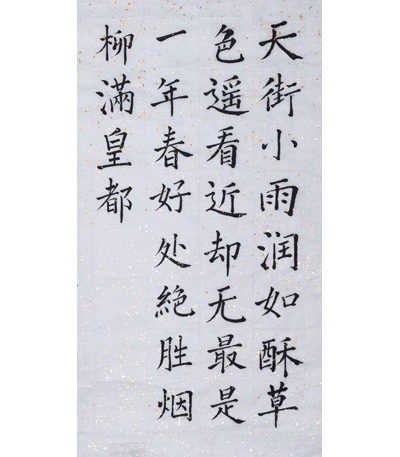 天街小雨润如酥草
色遥看近却无最是
一年春好处絶胜烟
柳满皇都